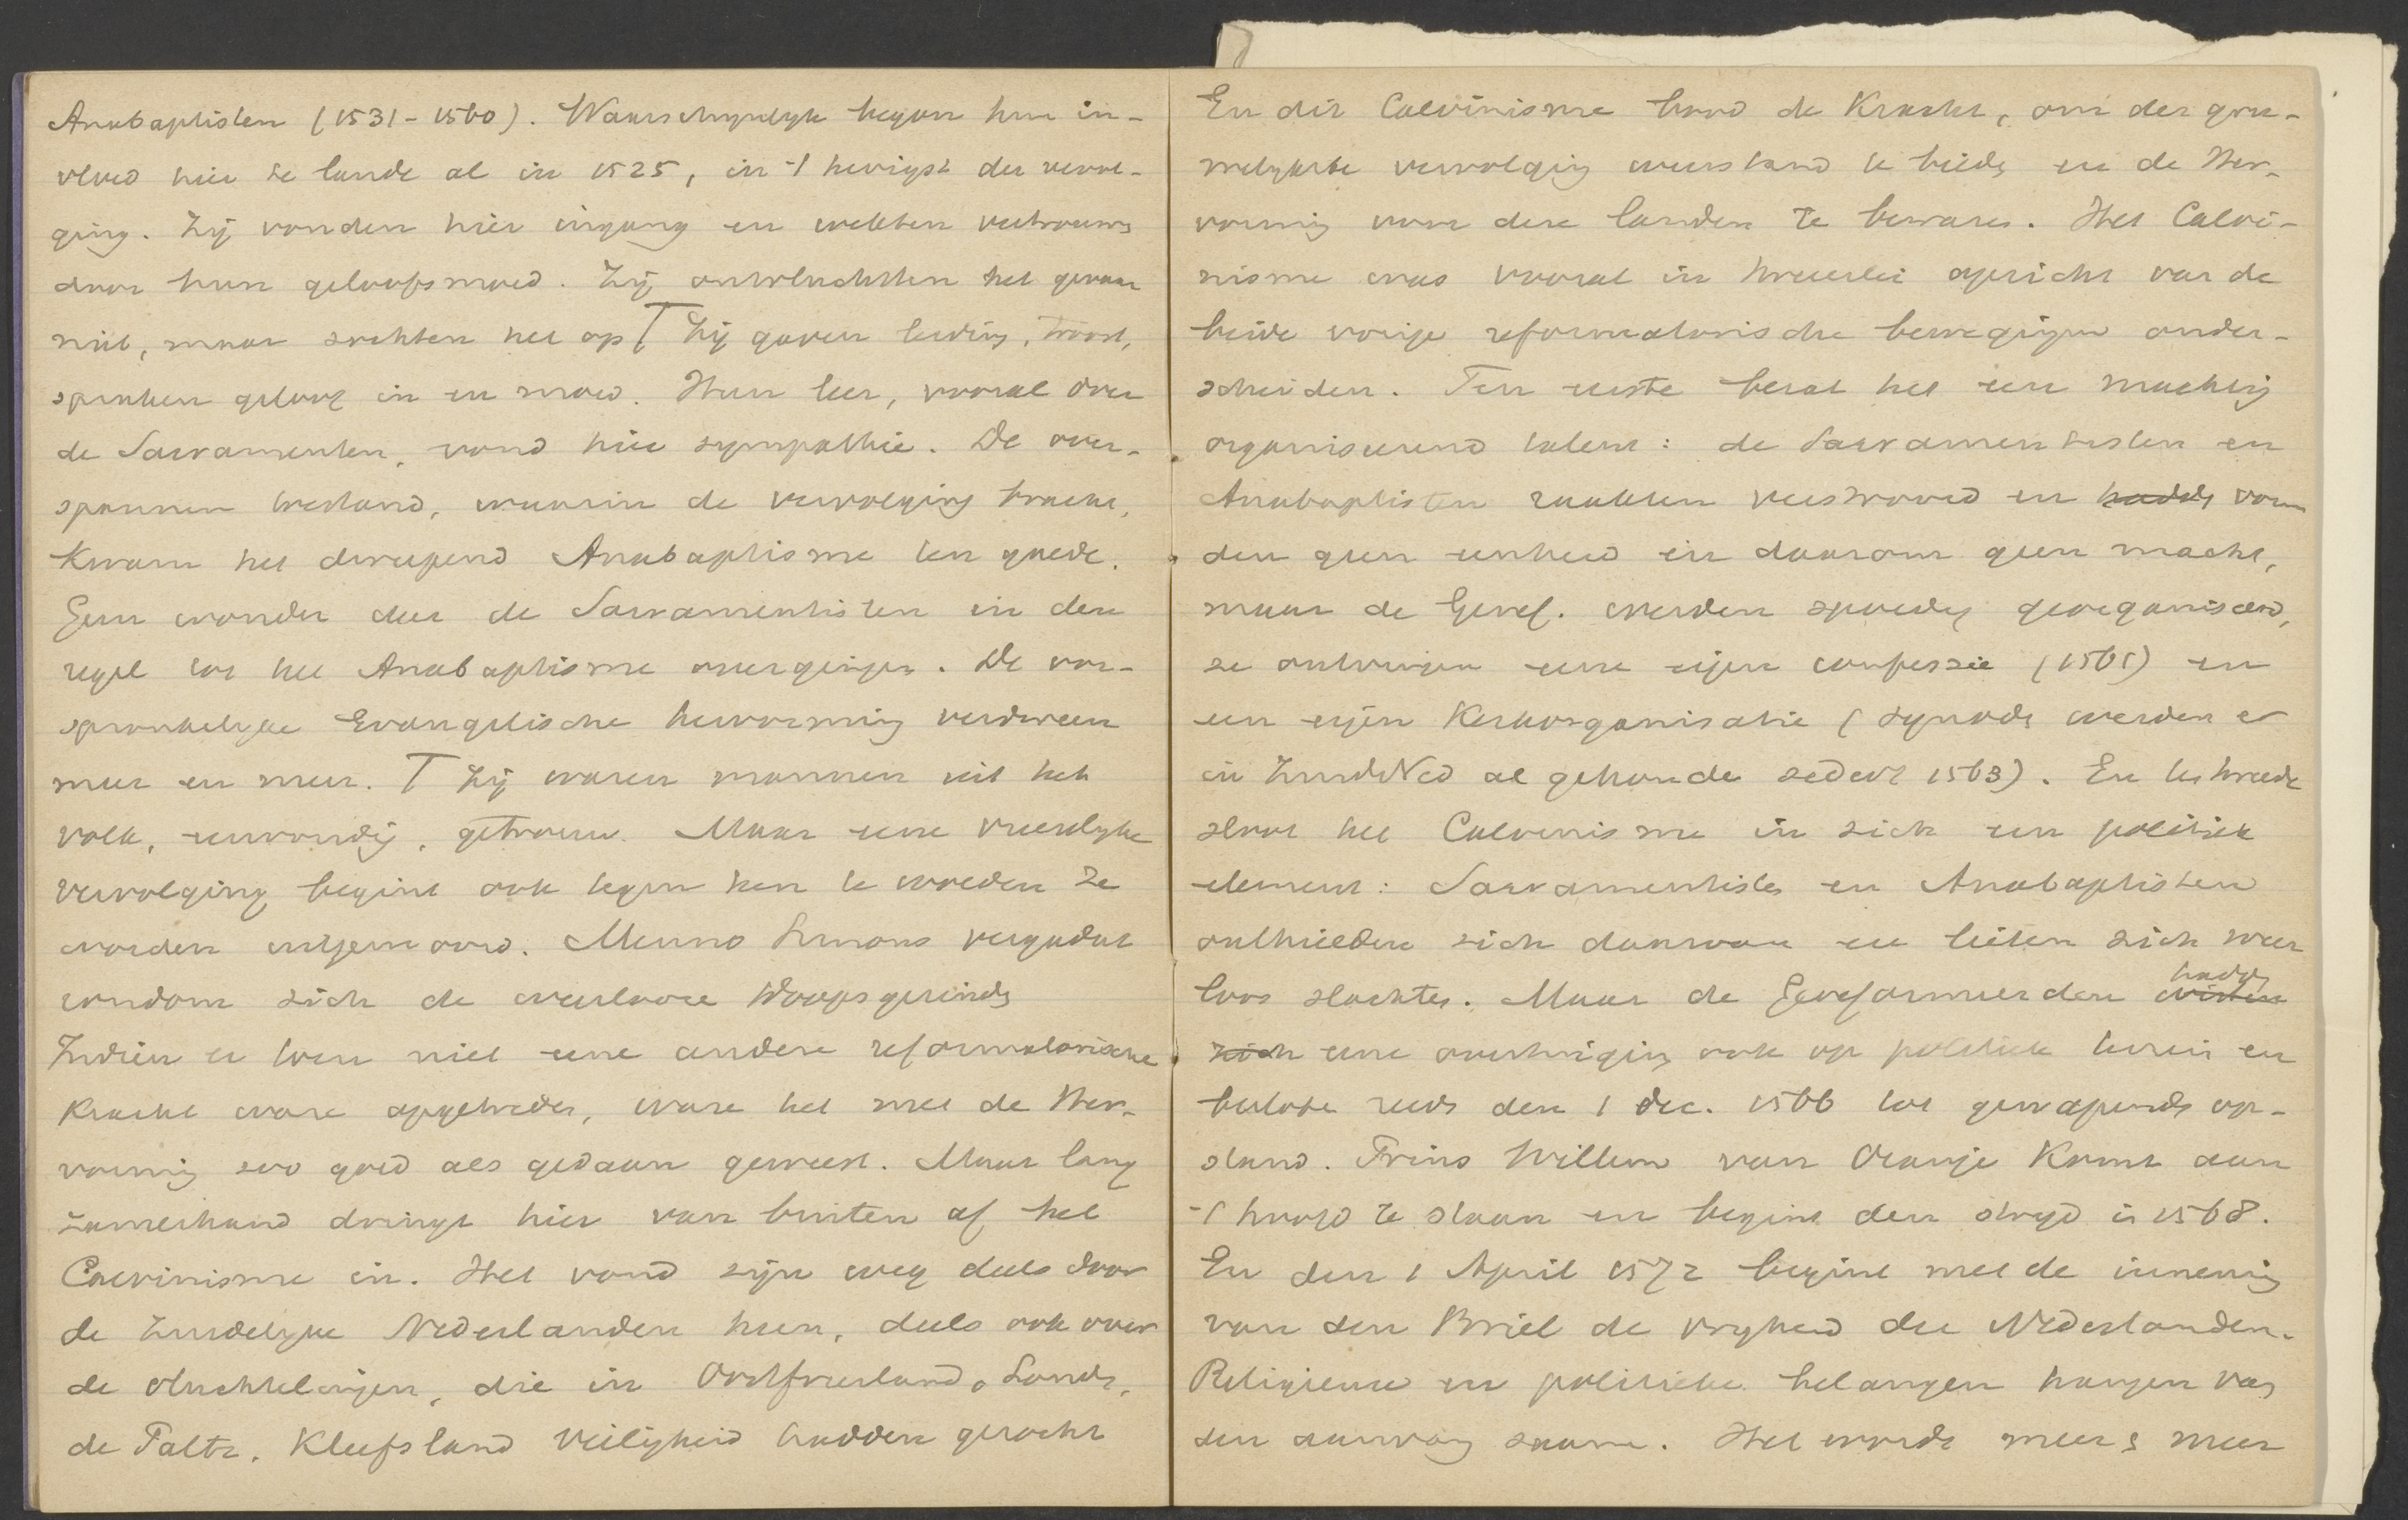 Anabaptisten (1531-1560). Waarschynlyk begon hun in-
vloed hier te lande al in 1525, in 't hevigst der vervol-
ging. Zij vonden hier ingang en wekten vertrouwen
door hun geloofsmoed. Zij ontvluchtten het gevaar
niet, maar zochten het op ⌈ Zij gaven leiding, troost,
spraken geloof in en moed. Hun leer, vooral over
de Sacramenten, vond hier sympathie. De over-
spannen toestand, waarin de vervolging bracht,
kwam het dweepend Anabaptisme ten goede.
Geen wonder dat de Sacramentisten in den
regel tot het Anabaptisme overgingen. De oor-
spronkelyke Evangelische hervorming verdween
meer en meer. ⌈ Zij waren mannen uit het
volk, eenvoudig, getrouw. Maar eene vreeslyke
vervolging begint ook tegen hen te woeden Ze
worden uitgemoord. Menno Simons vergadert
rondom zich de weerlooze Doopsgezinden
Indien er toen niet eene andere reformatorische
kracht ware opgetreden, ware het met de Her-
vorming zoo goed als gedaan geweest. Maar lang
zamerhand dringt hier van buiten af het
Calvinisme in. Het vond zijn weg deels door
de Zuidelyke Nederlanden heen, deels ook over
de vluchtelingen, die in Oostfriesland, Londen,
de Paltz, Kleefsland veiligheid hadden gezocht
En dit Calvinisme bood de Kracht, om der gru-
welykste vervolging weerstand te bieden en de Her-
vorming voor deze landen te bewaren. Het Calvi-
nisme was vooral in tweeerlei opzicht van de
beide vorige reformatorische bewegingen onder-
scheiden. Ten eerste bezat het een machtig
organiseerend talent: de Sacramentisten en
Anabaptisten raakten verstrooid en hadden vorm
den geen eenheid en daarom geen macht,
maar de Geref. werden spoedig georganiseerd,
ze ontvingen eene eigen confessie (1561) en
een eigen Kerkorganisatie (synoden werden er
in ZuidNed al gehouden sedert 1563). En ten tweede
sloot het Calvinisme in zich een politiek
element: Sacramentisten en Anabaptisten
onthielden zich daarvan en lieten zich weer
loos slachten. Maar de Gereformeerden wisten hadden
zich eene overtuiging ook op politiek terrein en
besloten reeds den 1 Dec. 1566 tot gewapenden op-
stand. Prins Willem van Oranje komt aan
't hoofd te staan en begint den stryd in 1568.
En den 1 April 1572 begint met de inneming
van den Briel de vryheid der Nederlanden.
Religieuse en politieke belangen hangen van
den aanvang saam. Het wordt meer & meer